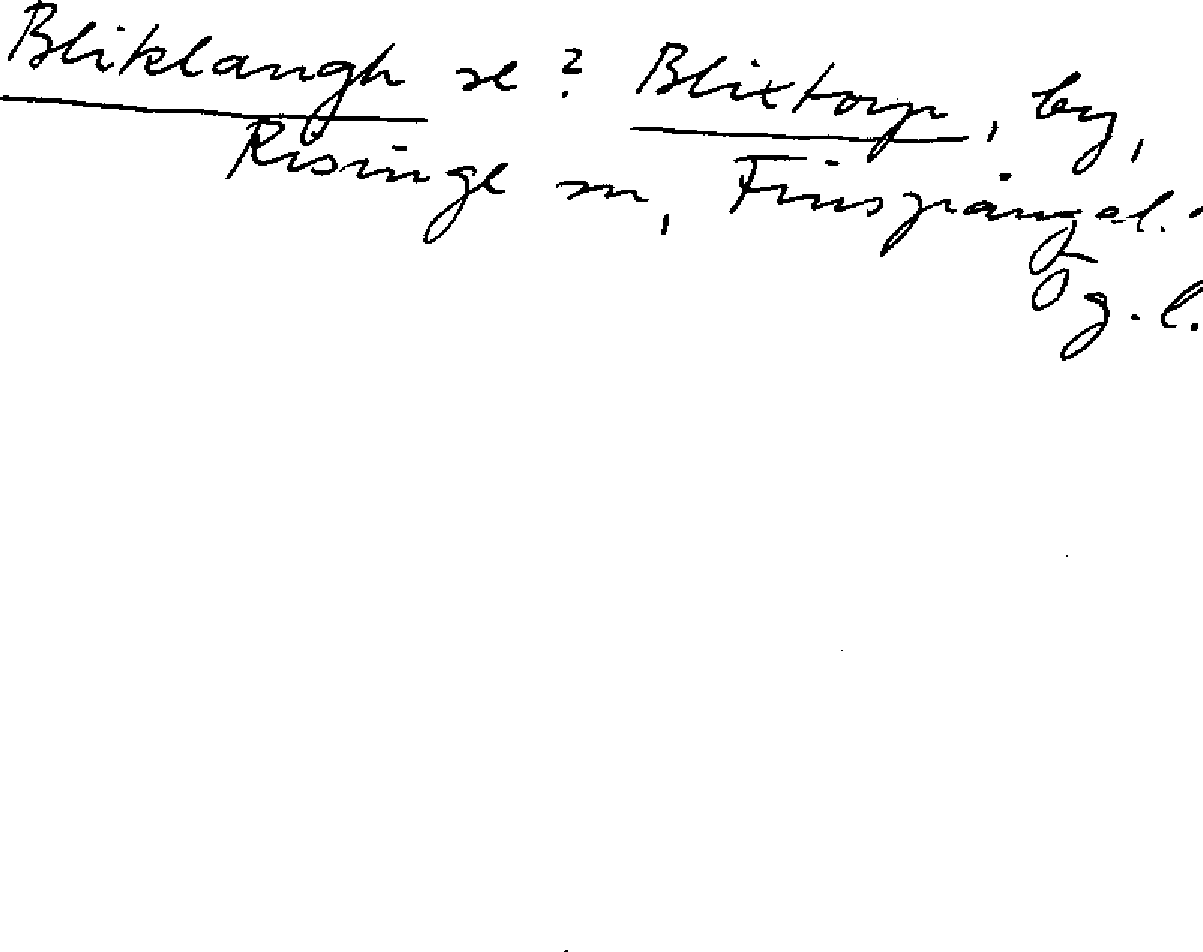 Bliklangh se? Blixtorp, by,
Risinge sn, Finspångal.
Ög.l.